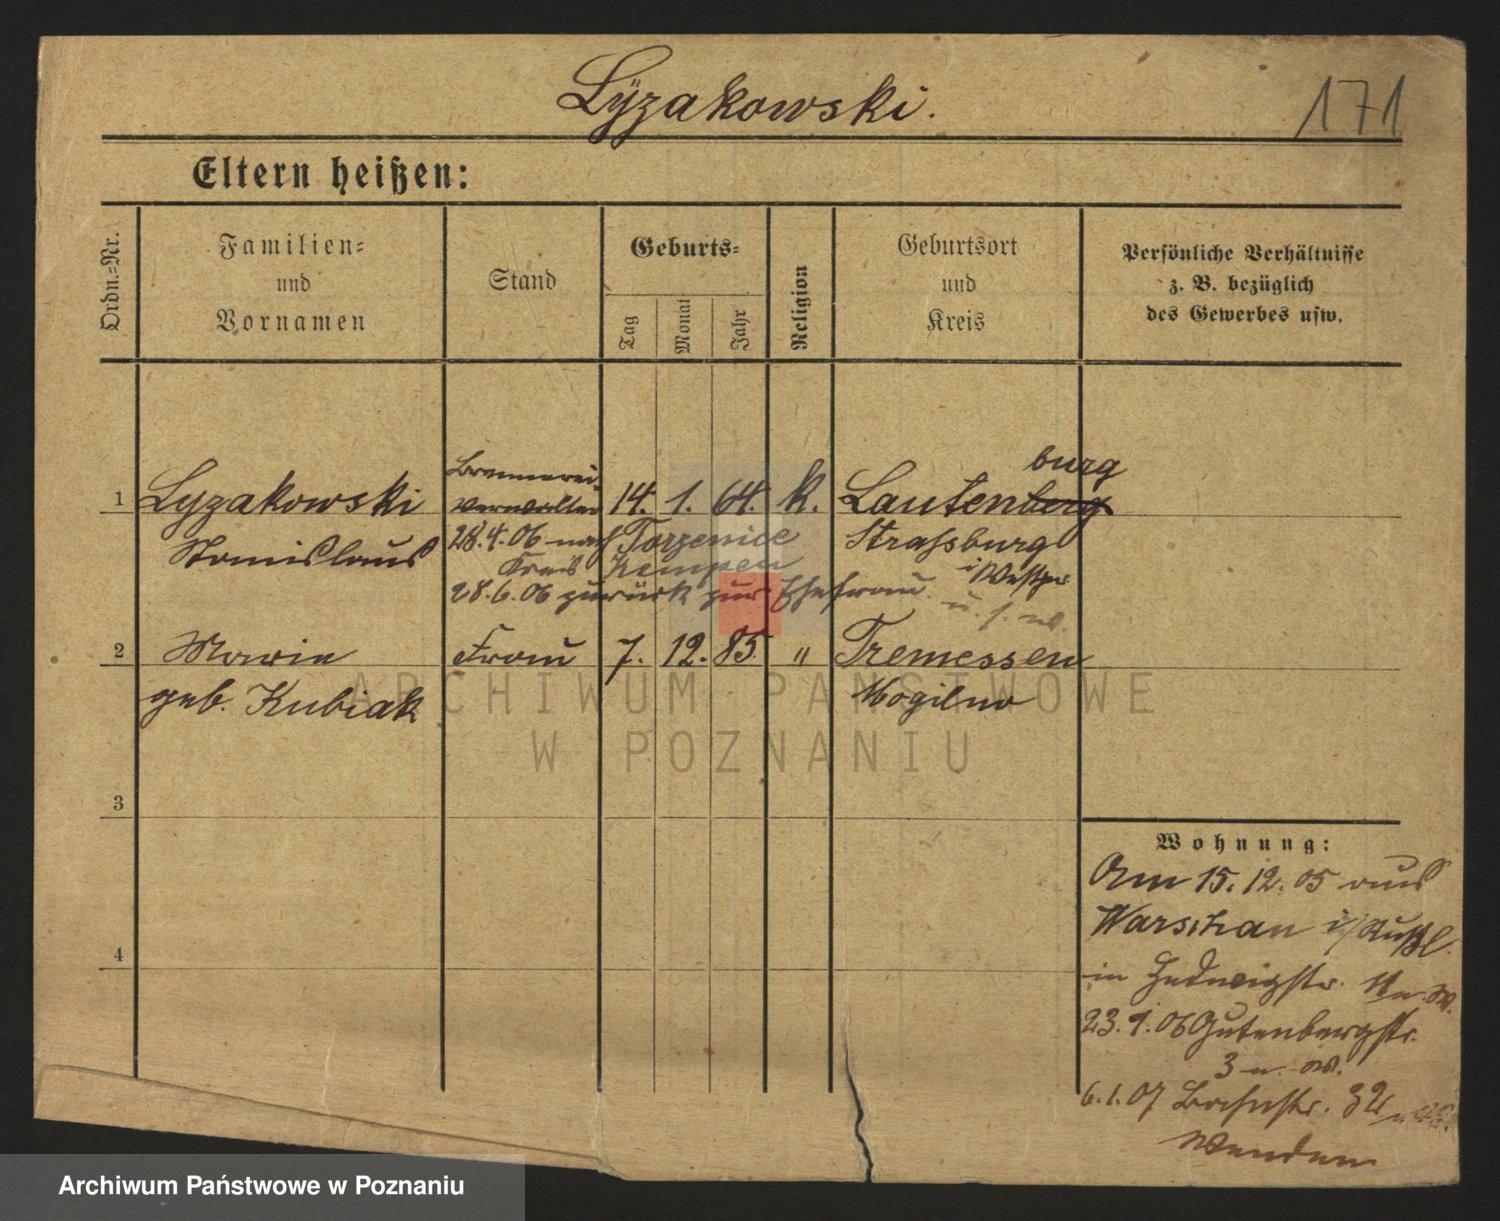 Lÿzakowski.
171
Eltern heißen:
Ordn.=Nr.
Familien=
und
Vornamen
Stand
Geburts=
Tag
Monat
Jahr
Religion
Geburtsort
und
Kreis
Persönliche Verhältnisse
z. B. bezüglich
des Gewerbes usw.
burg
1 Lyzakowski Brennerei-verwalter 14. 1. 64. k. Lautenberg
Stanislaus 28.4.06 nach Torzenice Strassburg
Kreis Kempen i/Westpr.
28.6.06 zurück zur Ehefrau u. s. w.
2 Marie Frau 7. 12. 85. " Tremessen
geb. Kubiak Mogilno
3
4
Wohnung:
Am 15.12.05 aus
Warschau i/Rußl.
in Hedwigstr.
23.9.06 Gutenbergstr.
3 n. w.
6.1.07 32
Wenden
ARCHIWUM PAŃSTWOWE
W POZNANIU
Archiwum Państwowe w Poznaniu